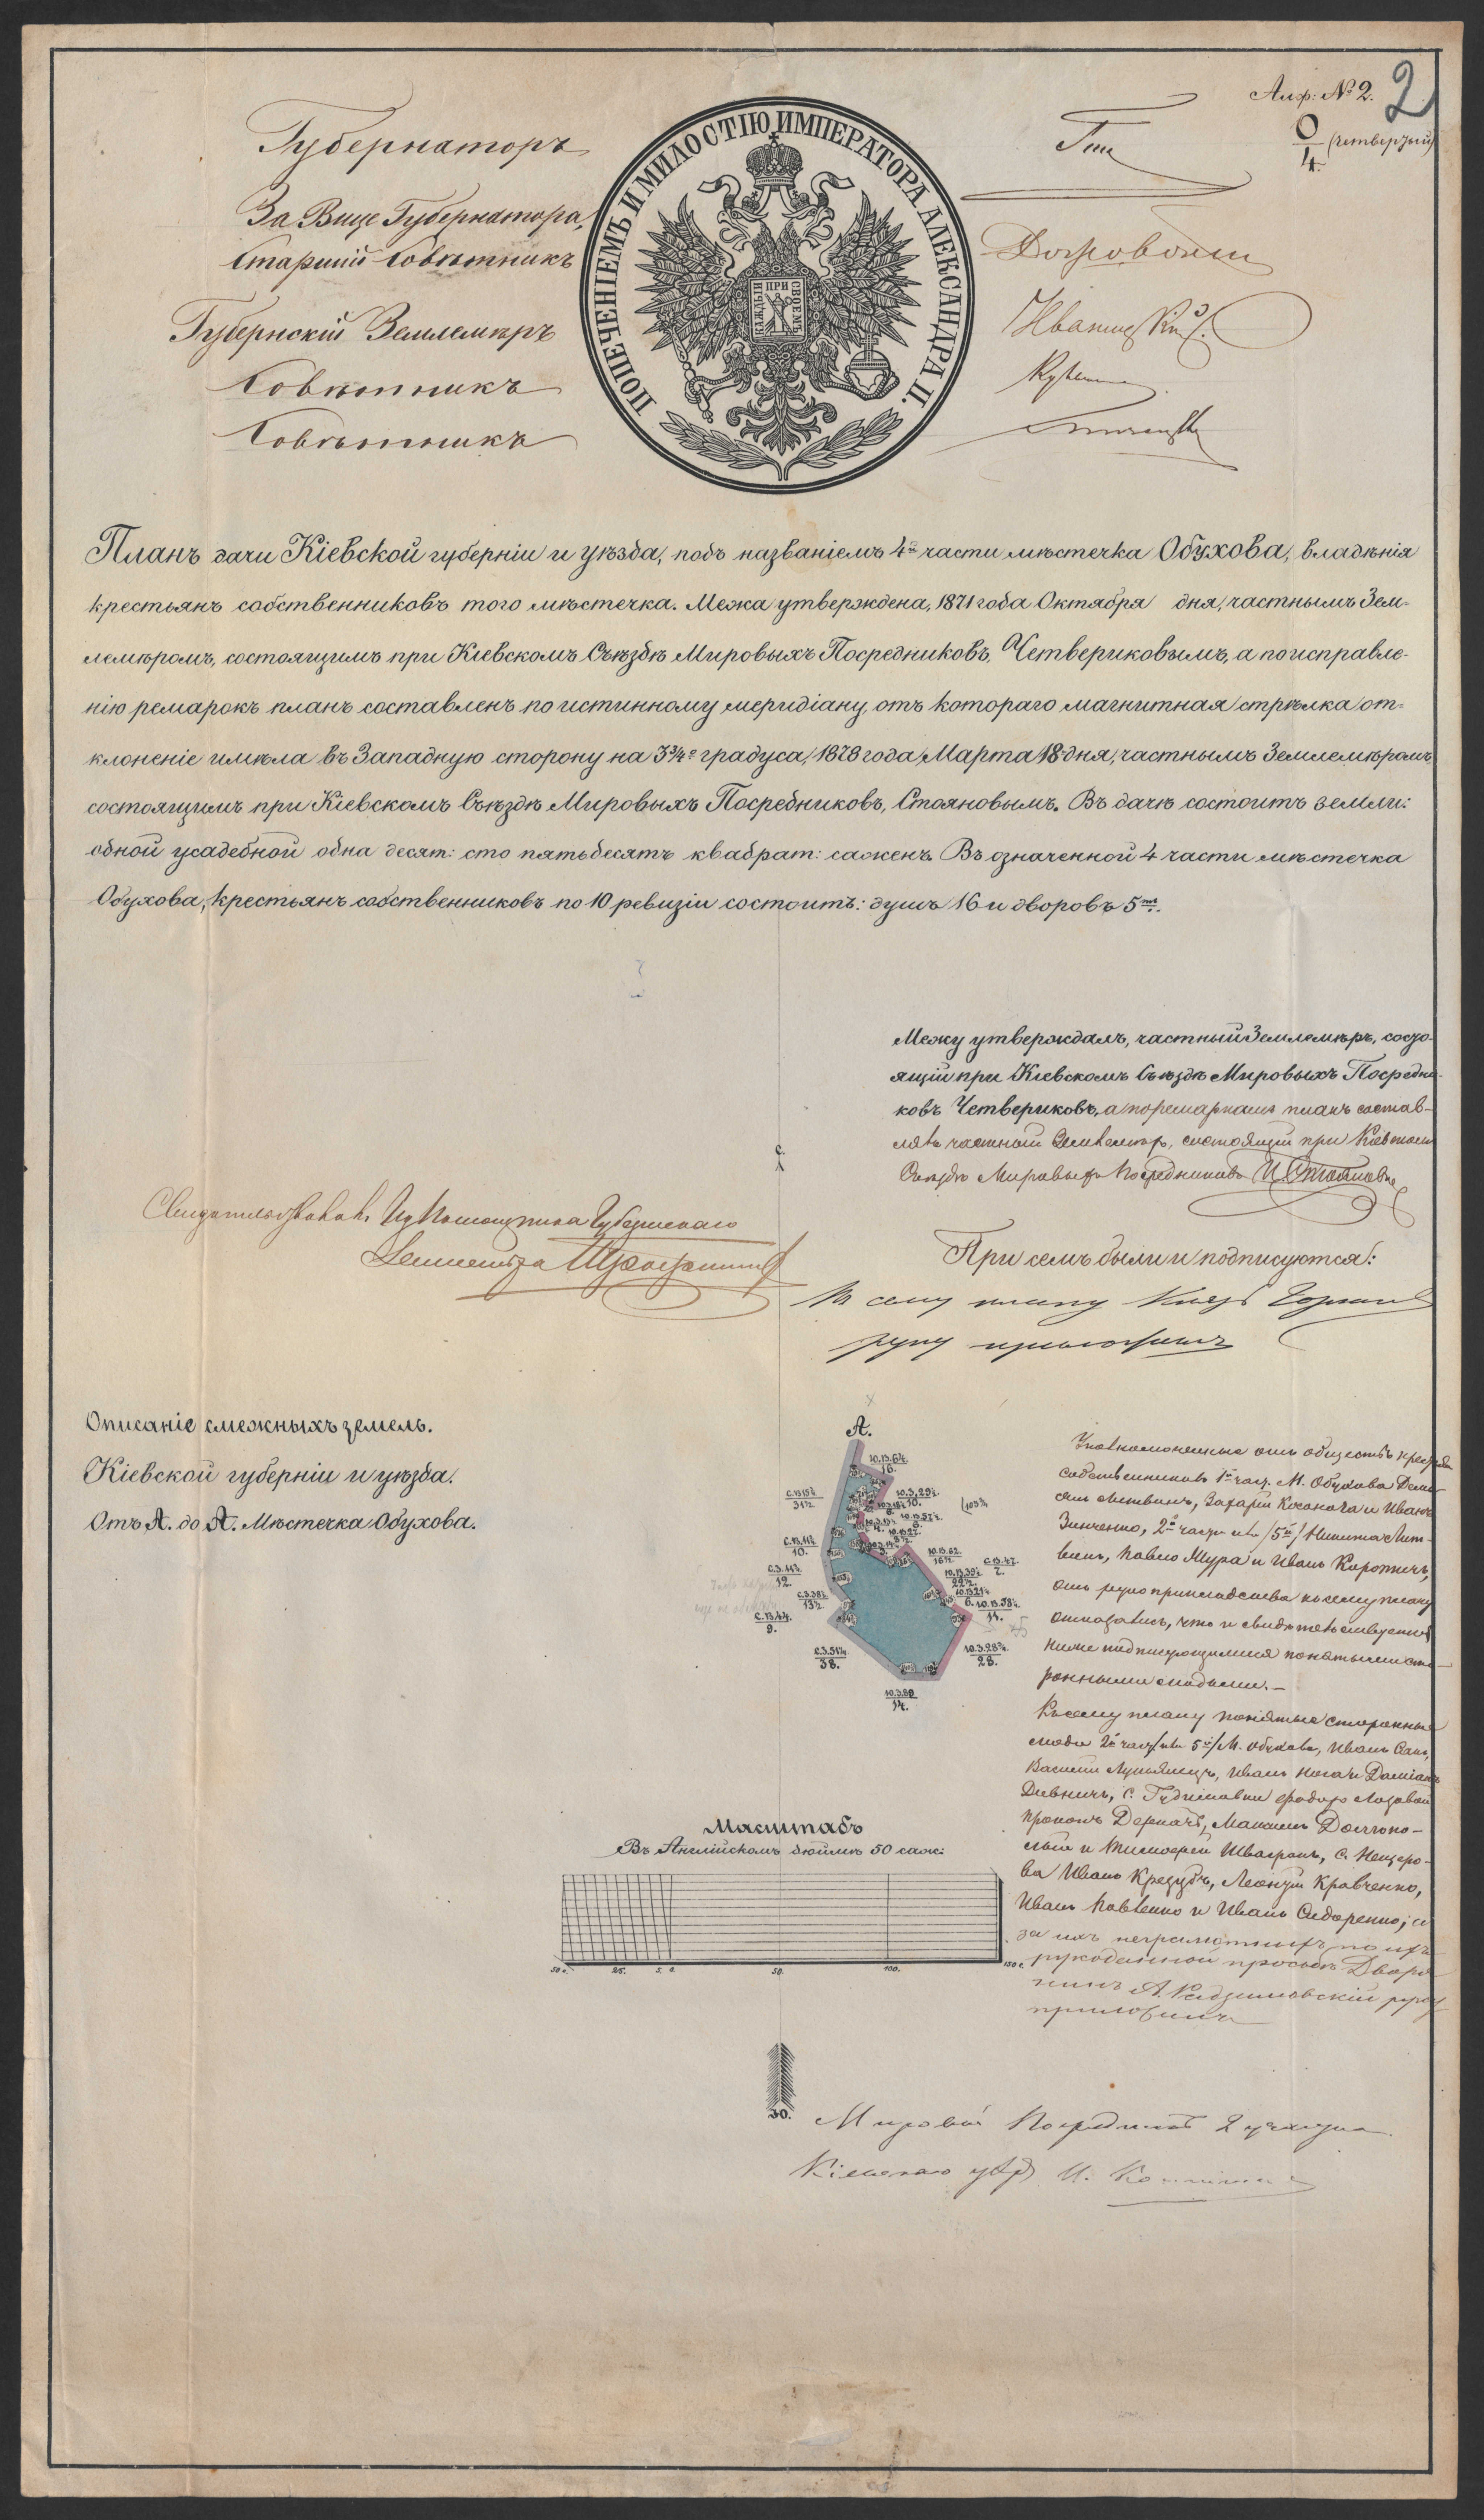 Алф: № 2. 2
0/4. (четвертый)
Губернаторъ
За Вице Губернатора,
Старшій Совѣтникъ
Губернскій Землемѣръ
Совѣтникъ
Совѣтникъ
ПОПЕЧЕНІЕМЪ И МИЛОСТІЮ ИМПЕРАТОРА АЛЕКСАНДРА II.
ПРИ СВОЕМЪ
Планъ дачи Кіевской губерніи и уѣзда, подъ названіемъ 4й части мѣстечка Обухова, владѣнія
крестьянъ собственниковъ того мѣстечка. Межа утверждена, 1871 года Октября дня, частнымъ Зем-
лемѣромъ, состоящимъ при Кіевскомъ Съѣздѣ Мировыхъ Посредниковъ, Четвериковымъ, а по исправле-
нію ремарокъ планъ составленъ по истинному меридіану, отъ котораго магнитная стрѣлка от-
клоненіе имѣла въ Западную сторону на 3¾° градуса, 1878 года Марта 18 дня, частнымъ Землемѣромъ
состоящимъ при Кіевскомъ Съѣздѣ Мировыхъ Посредниковъ, Стояновымъ. Въ дачѣ состоитъ земли:
одной усадебной одна десят: сто пятьдесятъ квадрат: саженъ. Въ означенной 4 части мѣстечка
Обухова, крестьянъ собственниковъ по 10 ревизіи состоитъ: душъ 16 и дворовъ 5ть.
Межу утверждалъ, частный Землемѣръ, состо-
ящій при Кіевскомъ Съѣздѣ Мировыхъ Посредни-
ковъ Четвериковъ, а по ремаркамъ планъ состав-
лялъ частный Землемѣръ, состоящій при Кіевскомъ
Съѣздѣ Мировыхъ Посредниковъ И Стояновъ
С.
Свидѣтельствовалъ Помощника Губернскаго
Землемѣра
При семъ были и подписуются:
Къ сему плану Князь
руку приложилъ
Описаніе смежныхъ земель.
Кіевской губерніи и уѣзда.
Отъ А. до А. Мѣстечка Обухова.
А.
Уполномоченные отъ обществъ крестьян
собственниковъ 1й част. М. Обухова Демь-
янъ Литвинъ, Захарій Косолача и Иванъ
Зинченко, 2й части или /5й/ Никита Лит-
винъ, Павло Мура и Иванъ Коротичъ,
отъ рукоприкладства къ сему плану
отказались, что и свидѣтельствуется
ниже подписующимися понятыми сто-
ронними людьми.-
Къ сему плану понятые сторонные
люди 2й част/или 5й/ М. Обухова, Иванъ
Василій Лукьянецъ, Иванъ Нога и Даміанъ
Дивничъ, С. Гудимовки Федоръ Лозовой
Прокопъ Деркачъ, Максимъ Долгопо-
лый и Тимофей Швагранъ, С. Нещеро-
ва Иванъ Кредубъ, Леонтій Кравченко,
Иванъ Павленко и Иванъ Сидоренко; а
за ихъ неграмотныхъ по ихъ
рукоданной просьбѣ Дворя-
нинъ А. Радзимовскій руку
приложилъ
10.В.6½. 16.
10.З.29½. 10.
С.В.15½. 31½.
С.В.11½. 10.
С.З.44½. 12.
С.З.38½. 13½.
С.В.44. 9.
С.З.51¼. 38.
10.З.89 14.
10.З.28¾. 28.
10.В.62. 16½.
С.В.47. 2.
Масштабъ
Въ Англійскомъ дюймѣ 50 саж:
50 с. 25. 5. 0. 50. 100. 150 с.
Ю.
Мировой Посредникъ 2 участка
Кіевскаго уѣзд